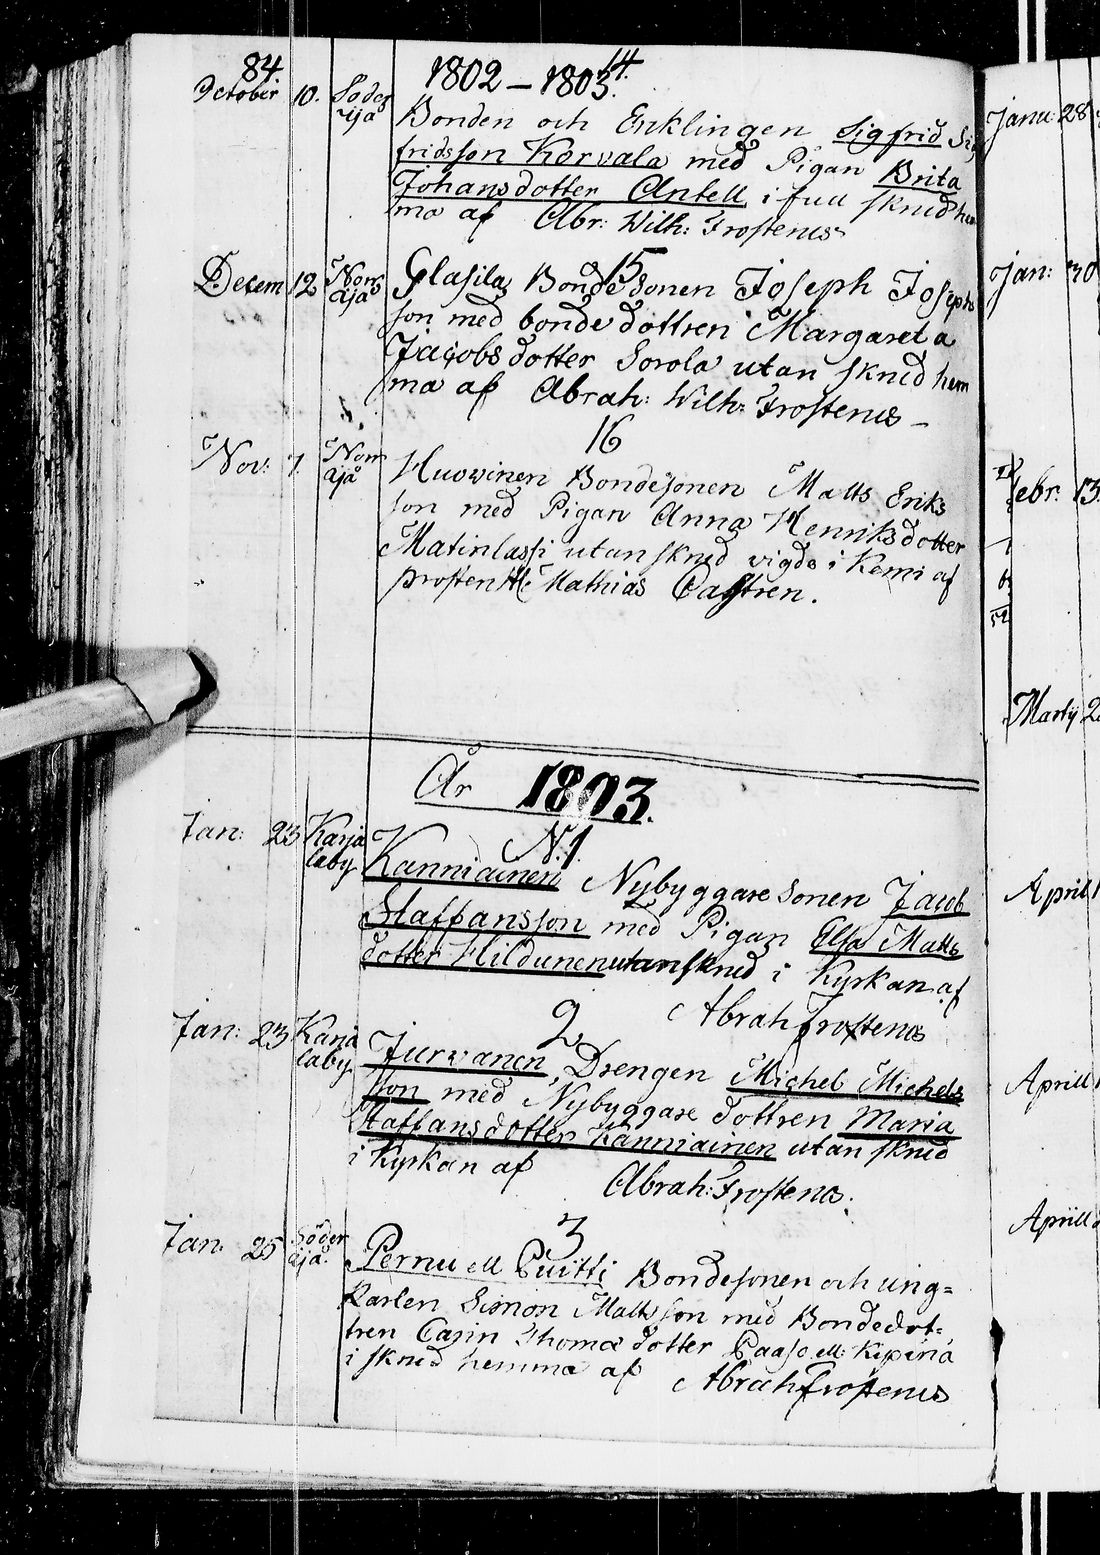 84.
1802 – 1803.
14.
October 10. Söder
åjå
Bonden och Enklingen Sigfrid Sig
fridsson Korvala med Pigan Brita
Johansdotter Antell i full skrud hem
ma af Abr: Wilh: Frostenus
15
Decem 12 Norr
åjå
Glasila, Bondesonen Joseph Josephs
son med bondedottren Margareta
Jacobsdotter Sorola utan skrud hem
ma af Abrah: Wilh: Frostenus –
16
Nov: 7. Norr
åjå
Huowinen Bondesonen Matts Eriks
son med Pigan Anna Henriksdotter
Matinlassi utan skrud vigde i Kemi af
prosten H: Mathias Castren.
År 1803.
N. 1.
Jan: 23 Karja
laby
Kanniainen Nybyggare sonen Jacob
Staffansson med Pigan Elsa Matts
dotter Hildunen utan skrud i Kyrkan af
Abrah Frostenus
2
Jan: 23 Karja
laby.
Jurwanen, Drengen Michel Michels
son med Nybyggare dottren Maria
Staffansdotter Kanniainen utan skrud
i Kyrkan af
Abrah: Frostenus.
3
Jan: 25 Söder
åjå.
Pernu ell Puitti Bondesonen och ung=
Karlen Simon Mattsson med Bondedot=
tren Carin Thomædotter Paaso ell: Kipinä
i skrud hemma af
Abrah Frostenus
Janu: 28
Jan: 30
Febr. 13
Martij 2
April 1
Aprill 1
Aprill